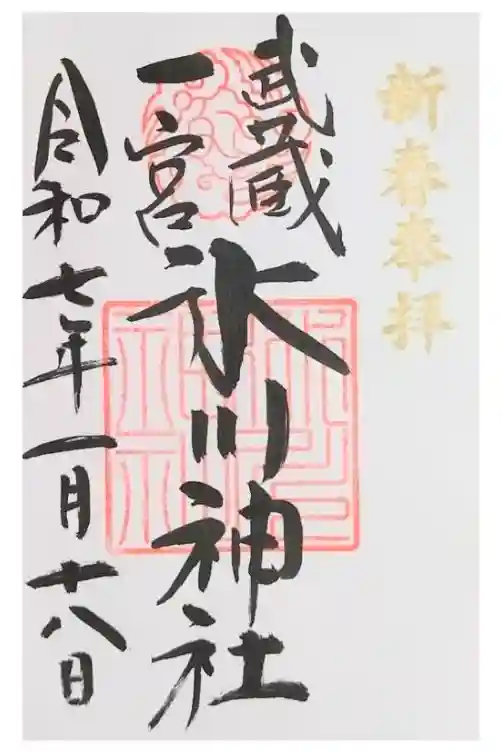 新春奉拝
武蔵
一宮
氷川神社
令和七年一月十八日
氷川
神社